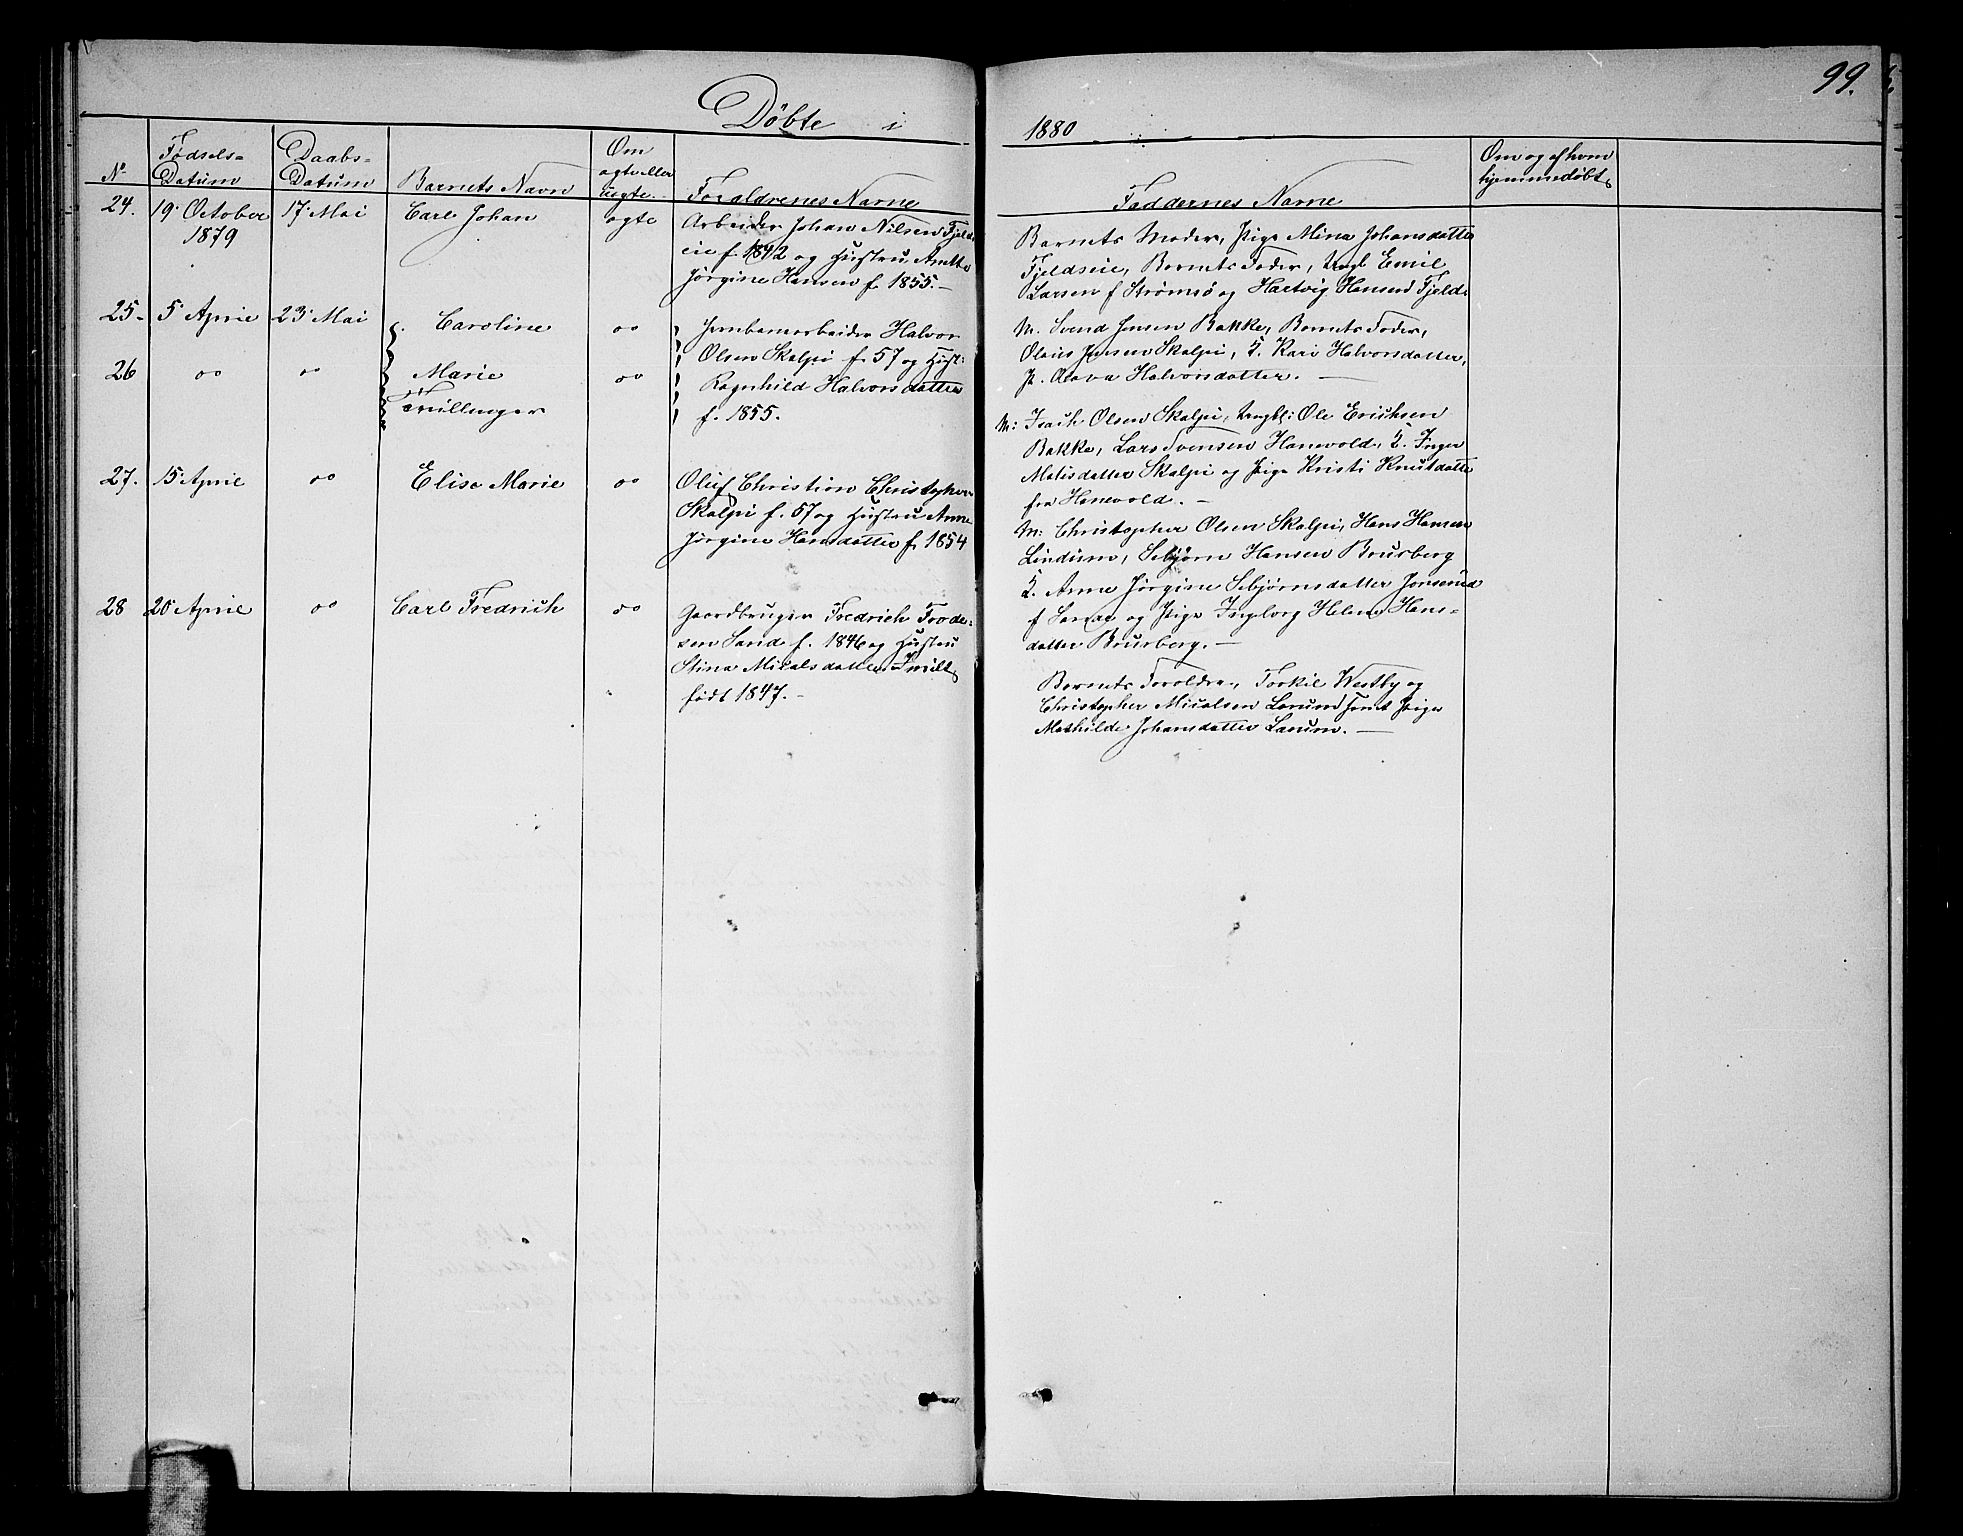 99.
Döbte i 1880
No
Fødsels-
Datum
Daabs-
Datum
Barnets Navn
Om
ægte eller
uægte
Forældrenes Navne
Faddernes Navne
Om og af hvem
hjemmedøbt
24. 19 October 17 Mai Carl Johan ægte Arbeider Johan Nilsen Fjeld-
1879 eie f. 1892 og Hustru Anette
Jørgine Hansen f. 1855. —
Barnets Moder, Pige Mina Johansdatter
Fjeldseie, Barnets Fader, Ungk Emil
Larsen f Strömsö og Hartvig Hansen Fjelds
25 - 5 April 23 Mai Caroline oo Jernbanearbeider Halvor
Olsen Skalpi f. 57 og Hust:
26 oo oo Marie oo Ragnhild Halvorsdatter
Tvillinger f. 1855.
M. Svend Jensen Bakke, Barnets Fader,
Olaus Jensen Skalpi, K. Kari Halvorsdatter,
P. Aava Halvorsdatter. —
M: Isach Olsen Skalpi, Ungkl: Ole Erichsen
Bakke, Lars Svensen Hanevold, K. Inger
Matisdatter Skalpi og Pige Kristi Knutsdatter
fra Hanevold. —
27. 15 April oo Elise Marie oo Oluf Christian Christopher-
Skalpi f. 57 og Hustru Anne
Jørgine Hansdatter f. 1854
M: Christopher Olsen Skalpi, Hans Hansen
Lindum, Sebjørn Hansen Brusberg
K. Anne Jørgine Sebjørnsdatter Jonserud
f Sande og Pige Ingeborg Helene Hans-
datter Brusberg. —
28 20 April oo Carl Fredrich oo Gaardbruger Fredrich Frode-
sen Sand f. 1846 og Hustru
Stina Micalsdatter
født 1847. —
Barnets Foroldre, Torkil Westby og
Christopher Micalsen Larum samt Pige
Mathilde Johansdatter Larum. —